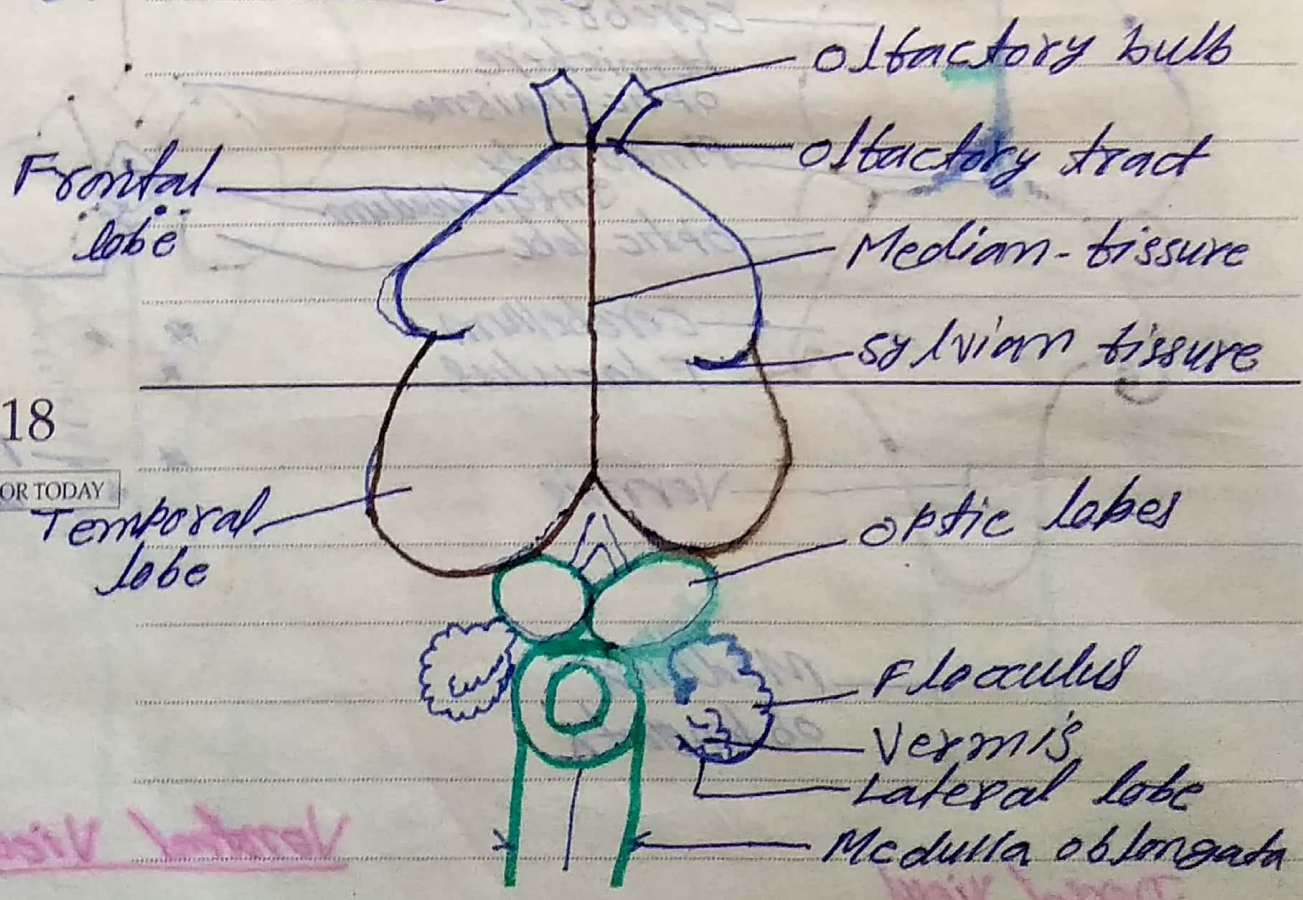 olfactory bulb
olfactory tract
Frontal
lobe
Median-fissure
Sylvian fissure
18
OR TODAY
Temporal
lobe
optic lobes
Flocculus
Vermis
Lateral lobe
Medulla oblongata
Ventral View